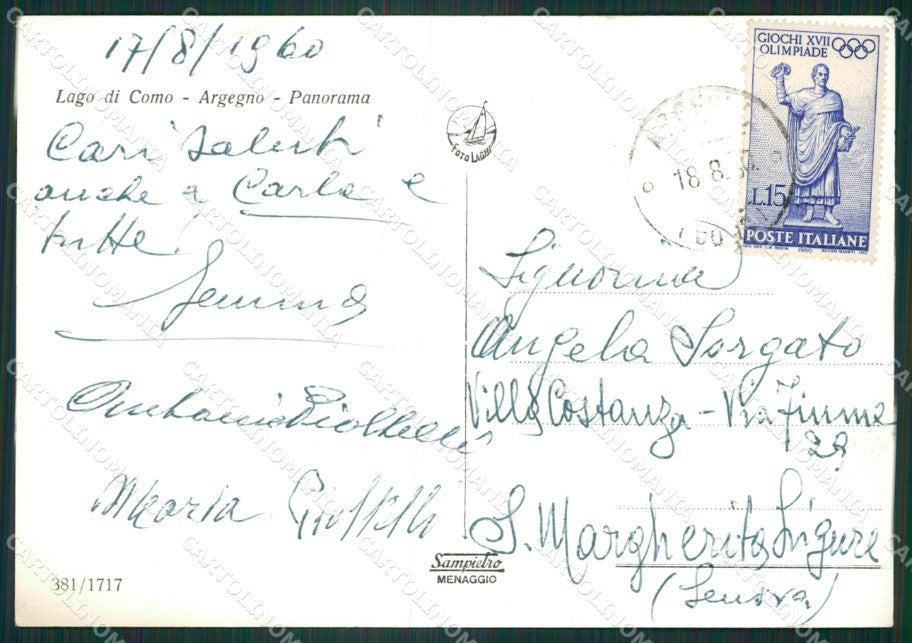 17/8/1960
Lago di Como - Argegno - Panorama
Cari saluti
anche a Carla e
tutte
Gemma
Maria
381/1717
FOTO LAGHI
Sampietro
MENAGGIO
GIOCHI XVII
OLIMPIADE
L.15
POSTE ITALIANE
1960
18.8.
Signorina
Angela Sorgato
Villa Costanza - Via Fiume
S. Margherita Ligure
(Genova)
CARTOLINOMANIA